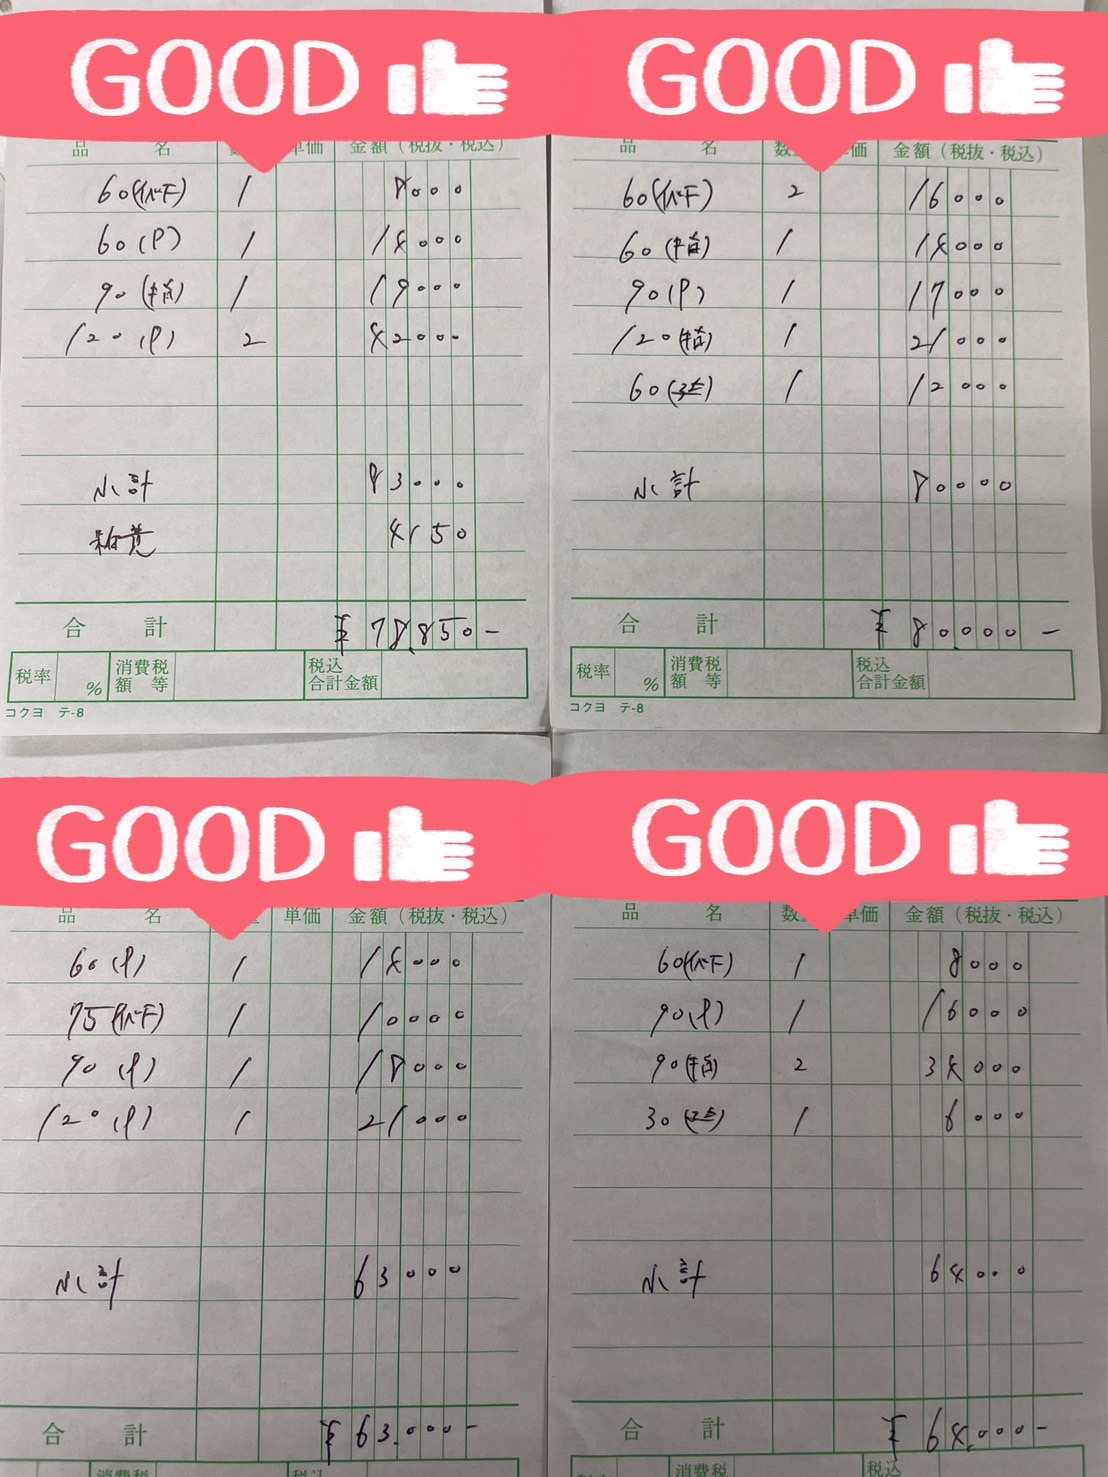 GOOD
品 名 単価 金額（税抜・税込）
60(イベ下) 1 8000
60(P) 1 14000
90(本指) 1 19000
120(P) 2 42000
小計 83000
4150
合 計 ¥78,850-
税率 % 消費税額等 税込合計金額
コクヨ テ-8
GOOD
品 名 数 単価 金額（税抜・税込）
60(イベ下) 2 16000
60(本指) 1 14000
90(P) 1 17000
120(本指) 1 21000
60 1 12000
小計 80000
合 計 ¥80,000-
税率 % 消費税額等 税込合計金額
コクヨ テ-8
GOOD
品 名 単価 金額（税抜・税込）
60(P) 1 14000
75(イベ下) 1 10000
90(P) 1 18000
120(P) 1 21000
小計 63000
合 計 ¥63,000-
消費税 税込
GOOD
品 名 数 単価 金額（税抜・税込）
60(イベ下) 1 8000
90(P) 1 16000
90(本指) 2 34000
30 1 6000
小計 64000
合 計 ¥64,000-
消費税 税込